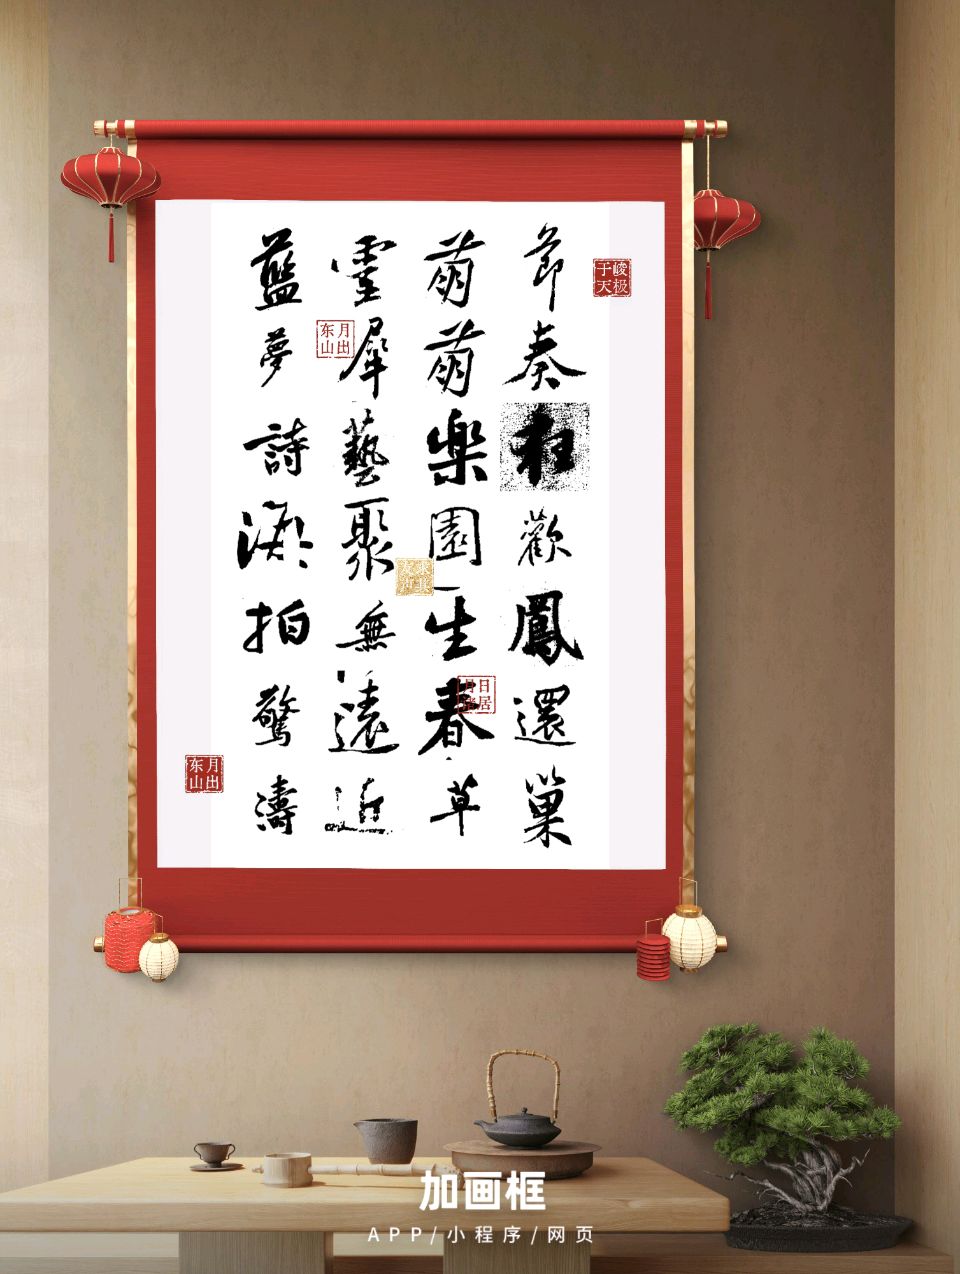 峻极
于天
節奏狂歡鳳還巢
萌萌樂園生春草
日居
月诸
靈犀藝聚無遠近
月出
东山
藍夢詩潮拍驚濤
月出
东山
加画框
APP/小程序/网页